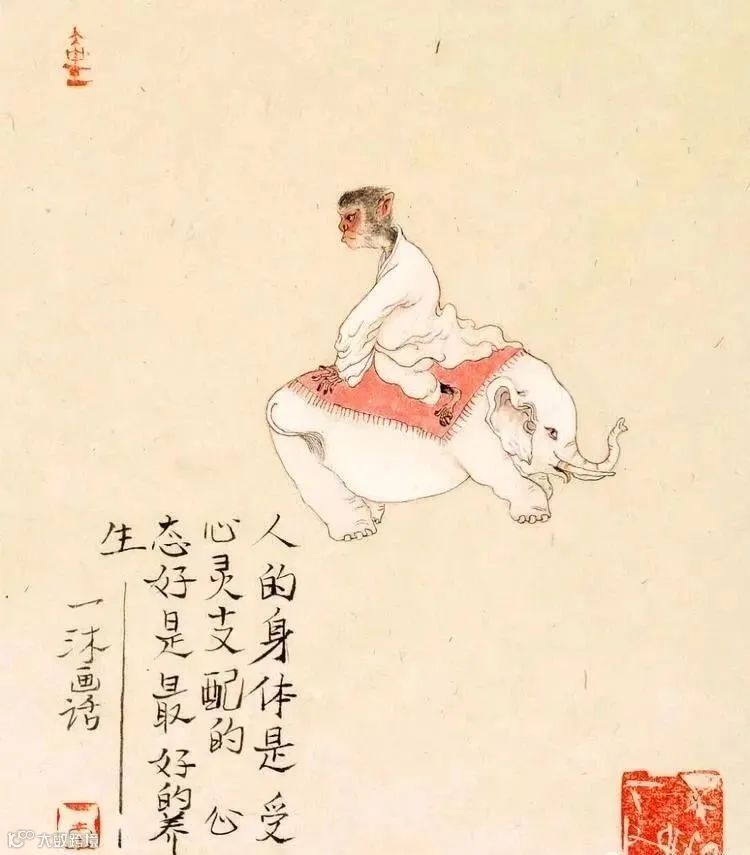 人的身体是受
心灵支配的心
态好是最好的养
生
一沐画话
大数跨境